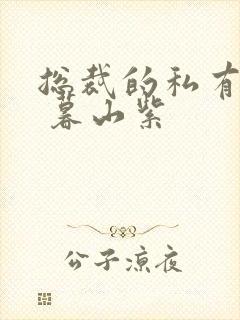 总裁的私有
暮山紫
公子凉夜